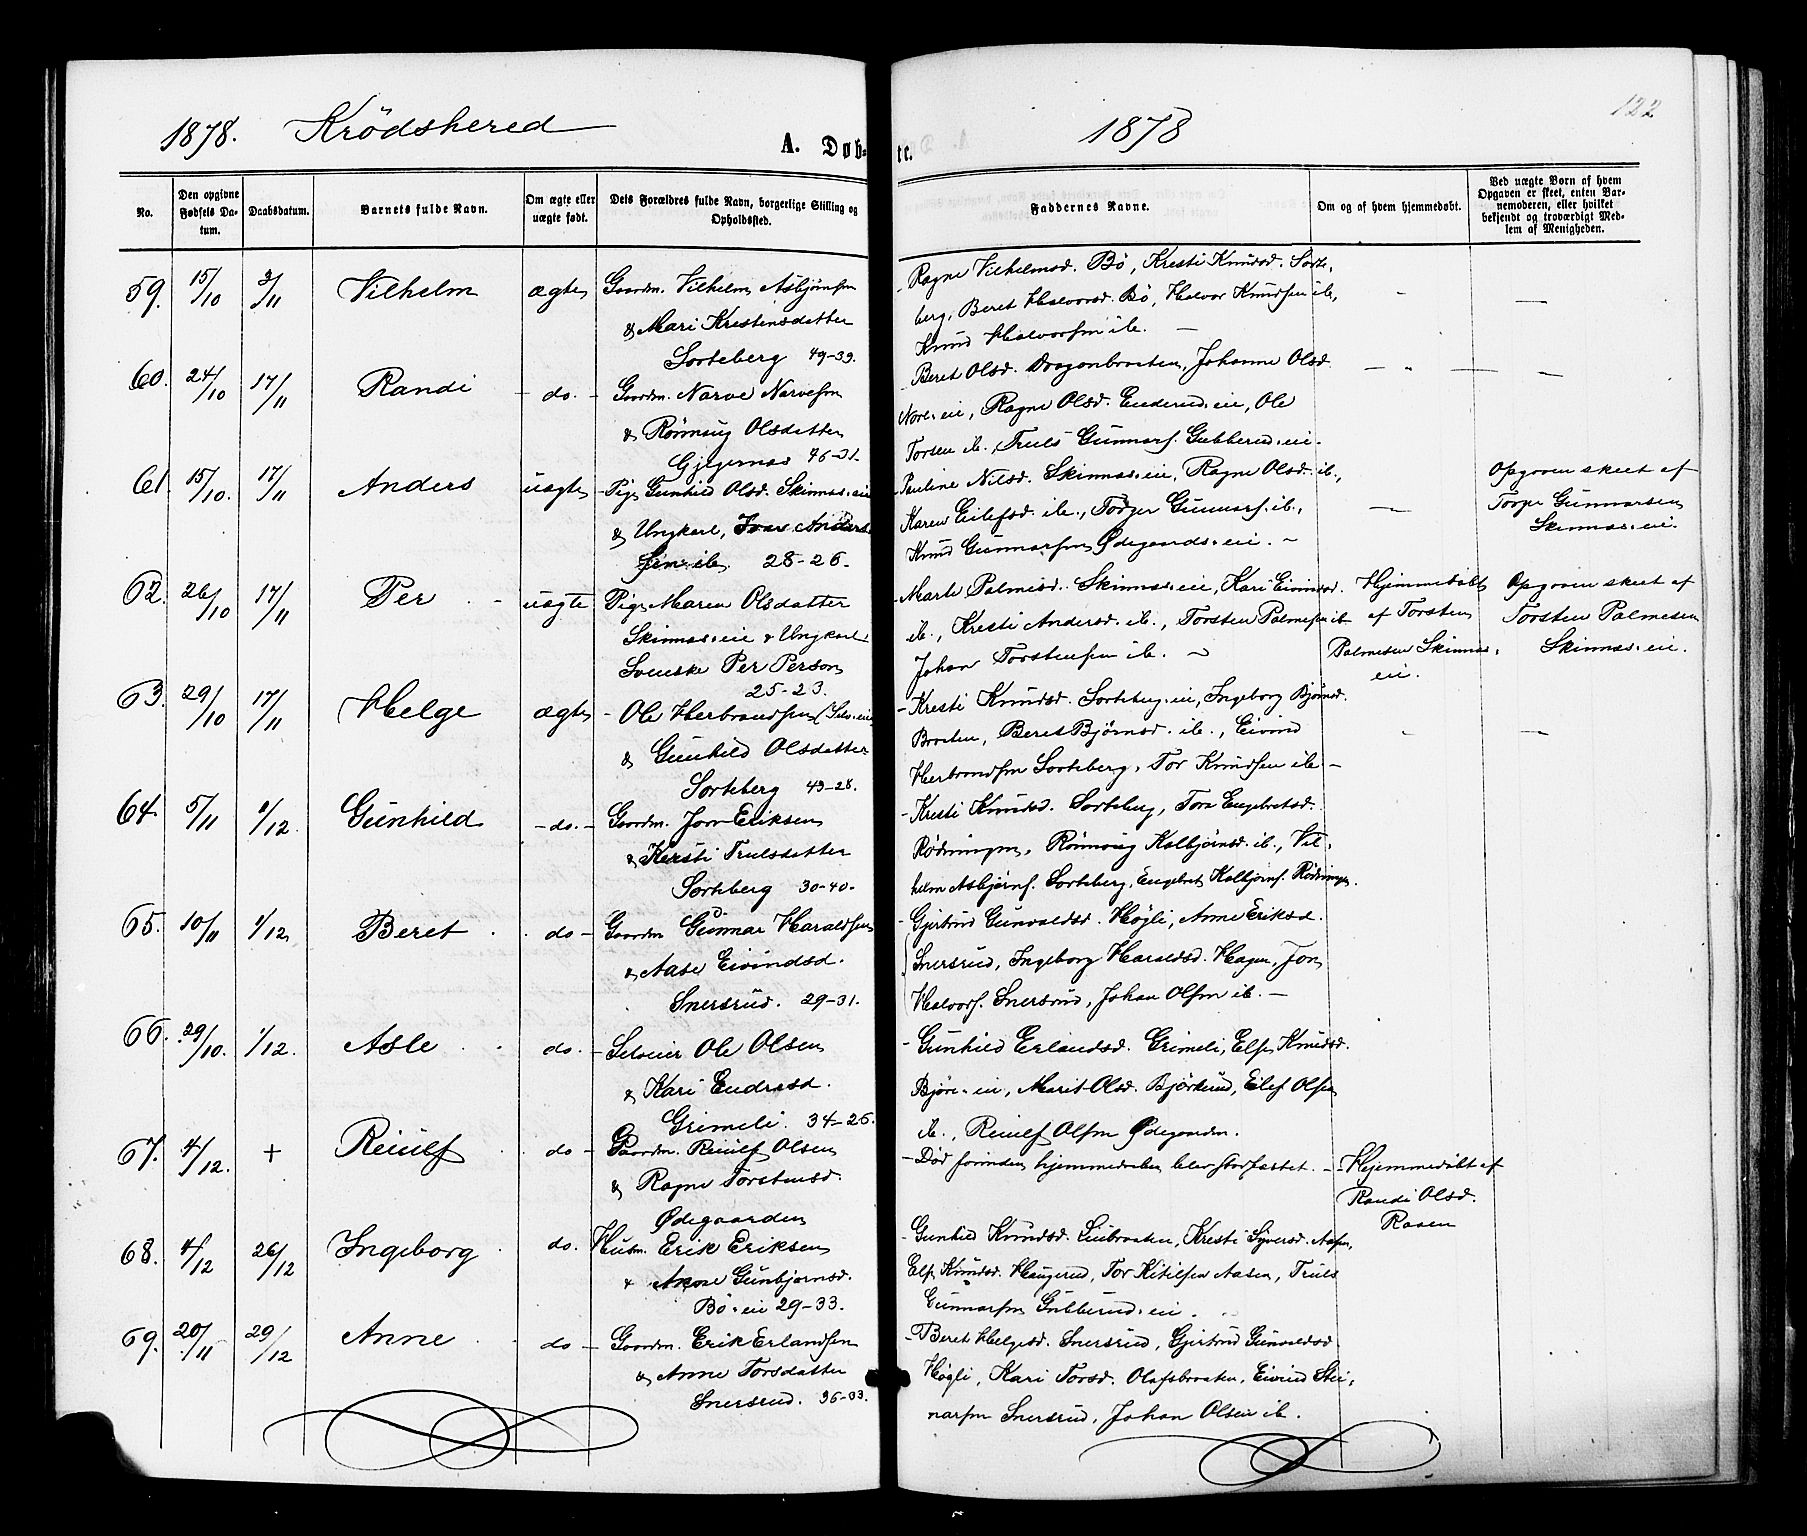 1878. Krödshered
A. Døb-
te.
1878
122
No.
Den opgivne Fødsels Da-
tum.
Daabsdatum.
Barnets fulde Navn.
Om ægte eller
uægte født.
Dets Forældres fulde Navn, borgerlige Stilling og
Opholdssted.
Faddernes Navne.
Om og af hvem hjemmedøbt.
Ved uægte Born af hvem
Opgaven er skeet, enten Bar-
nemoderen, eller hvilket
bekjendt og troværdigt Med-
lem af Menigheden.
59. 15/10 3/11 Vilhelm ægte Gaardm. Vilhelm Asbjörnsen
& Mari Kristensdatter
Sorteberg 49-39.
Ragne Vilhelmsd. Bö, Kresti Knudsd. Sorte-
berg, Beret Halvorsd. Bö, Halvor Knudsen ib.,
Knud Halvorsen ib. —
60. 24/10 17/11 Randi - do. - Gaardm. Narve Narvesen
& Rönnaug Olsdatter
Gjegernas 46-31.
- Beret Olsd. Dragonbraaten, Johanne Olsd.
Nore-eie, Ragne Olsd. Enderud-eie, Ole
Torsen ib., Truls Gunnars. Gubberud-eie.
61. 15/10. 17/11 Anders uægte - Pige Gunhild Olsd. Skinnas-eie
& Ungkarl, Ivar Anders-
sen ib. 28-26.
- Pauline Nilsd. Skinnas-eie, Ragne Olsd. ib.,
Karen Eilefsd. ib., Torger Gunnars. ib.,
Knud Gunnarsen Ödegaards-eie. -
Opgaven skeet af
Torger Gunnarsen
Skinnas-eie.
62. 26/10 17/11 Per uægte Pige Maren Olsdatter
Skinnas-eie & Ungkarl
Svenske Per Person
25-23.
- Marte Palmesd. Skinnas-eie, Kari Eivindsd.
ib., Kresti Andersd. ib., Torsten Palmesen ib.
Johan Torstensen ib. -
Hjemmedöbt
af Torsten
Palmesen Skinnas-
eie.
Opgaven skeet af
Torsten Palmesen
Skinnas-eie.
63. 29/10 17/11 Helge ægte - Ole Herbrandsen (Selv-eie)
& Gunhild Olsdatter
Sorteberg 43-28.
- Kresti Knudsd. Sorteberg-eie, Ingeborg Björnsd.
Braaten, Beret Björnsd. ib., Eivind
Herbrandsen Sorteberg, Tor Knudsen ib. -
64. 5/11 1/12. Gunhild - do. - Gaardm. Jon Eriksen
& Kersti Trulsdatter
Sorteberg 30-40.
- Kresti Knudsd. Sorteberg, Tora Engebretsd.
Rödningen, Rönnaug Kolbjörnsd. ib., Vil-
helm Asbjørns. Sorteberg, Engebret Kolbjörns. Rödningen.
65. 10/11 1/12, Beret do - Gaardm Gunnar Haraldsen
& Aase Eivindsd.
Snersrud. 29-31.
- Gjertrud Gunvaldsd. Högli, Anne Eriksd.
Snersrud, Ingeborg Haraldsd. Hagen, Jon
Halvors. Snersrud, Johan Olsen ib. —
66. 29/10. 1/12. Asle do. - Selveier Ole Olsen
& Kari Endresd.
Grimeli. 34-26.
- Gunhild Erlandsd. Grimeli, Else Knudsd.
Björe-eie, Marit Olsd. Björkerud, Eilef Olsen
ib., Reiulf Olsen Ödegaarden.
67. 4/12. + Reiulf do - Gaardm. Reiulf Olsen
& Ragne Torstensd.
Ödegaarden
- Död forinden hjemmedaaben blev stadfæstet. -
Hjemmedöbt af
Randi Olsd.
Raaen
68. 4/12 26/12 Ingeborg do. Husm. Erik Eriksen
& Anne Gunbjornsd.
Bö-eie 29-33.
- Gunhild Knudsd. Liubraaten, Kresti Syversd. Aasen,
Else Knudsd. Haugerud, Tor Kitilsen Aasen, Truls
Gunnarsen Gubberud-eie.
69. 20/11 29/12 Anne do - Gaardm. Erik Erlandsen
& Anne Torsdatter
Snersrud. 36-33.
- Beret Helgesd. Snersrud, Gjertrud Gunvaldsd.
Högli, Kari Torsd. Olafsbraaten, Eivind Stei-
narsen Snersrud, Johan Olsen ib.